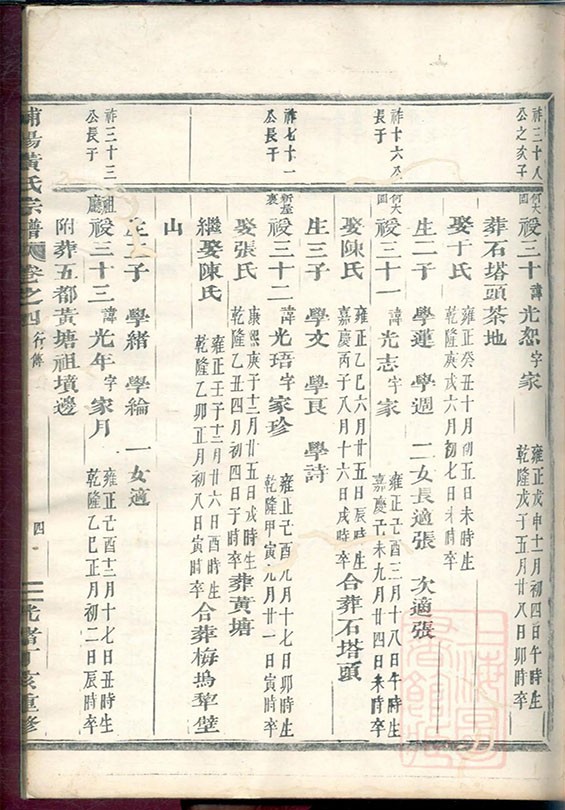 祚三十八公之次子
何大園 祾三十 諱光恕字家 雍正戊申十一月初四日午時生 乾隆戊子五月廿八日卯時卒
葬石塔頭茶地
娶于氏 雍正癸丑十月初五日未時生 乾隆庚戌六月初七日未時卒
生二子 學蓮 學週 二女長適張 次適張
祚十六公長子
何大園 祾三十一 諱光志字家 雍正己酉三月十八日午時生 嘉慶己未九月廿四日未時卒
娶陳氏 雍正乙巳六月廿五日辰時生 嘉慶丙子八月十六日戌時卒 合葬石塔頭
生三子 學文 學良 學詩
祚七十一公長子
祾三十二 諱光珸字家珍 雍正己酉九月十七日卯時生 乾隆甲寅九月廿一日寅時卒
娶張氏 康熙庚子十二月廿五日戌時生 乾隆乙丑四月初四日子時卒 葬黃塘
繼娶陳氏 雍正壬子十二月廿六日酉時生 乾隆乙卯正月初八日寅時卒 合葬梅塢犂壁
山
生二子 學緒 學綸 一女適
祚三十三公長子
祖廳 祾三十三 諱光年字家月 雍正己酉十二月十七日丑時生 乾隆乙巳正月初二日辰時卒
附葬五都黃塘祖墳邊
浦陽黃氏宗譜 卷之四 行傳 四 光緒丁亥重修